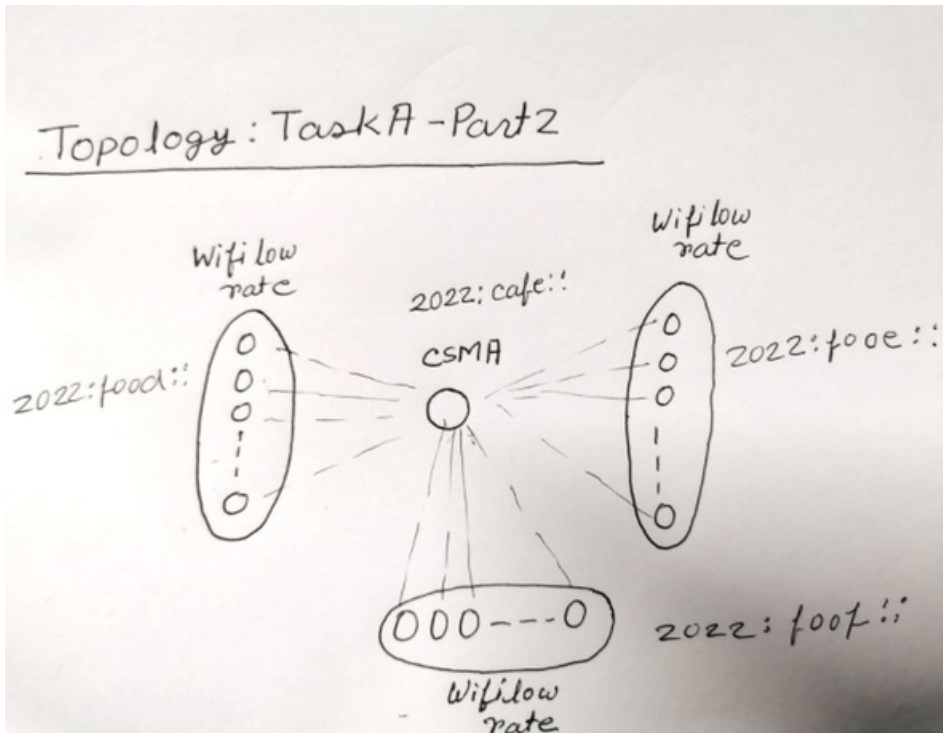 Topology: TaskA-Part2
Wifi low
rate
2022:f00d::
2022:cafe::
CSMA
Wifi low
rate
2022:f00e::
2022: f00f::
Wifi low
rate